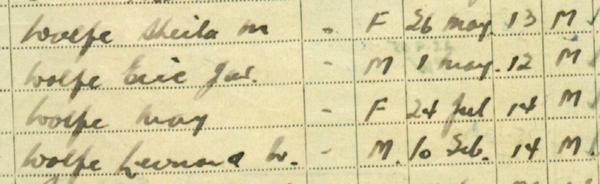 Wolfe Sheila M - F 26 May. 13 M
Wolfe Eric Jas. - M 1 May. 12 M
Wolfe May - F 24 Jul 14 M
Wolfe Leonard W. - M. 10 Feb. 14 M